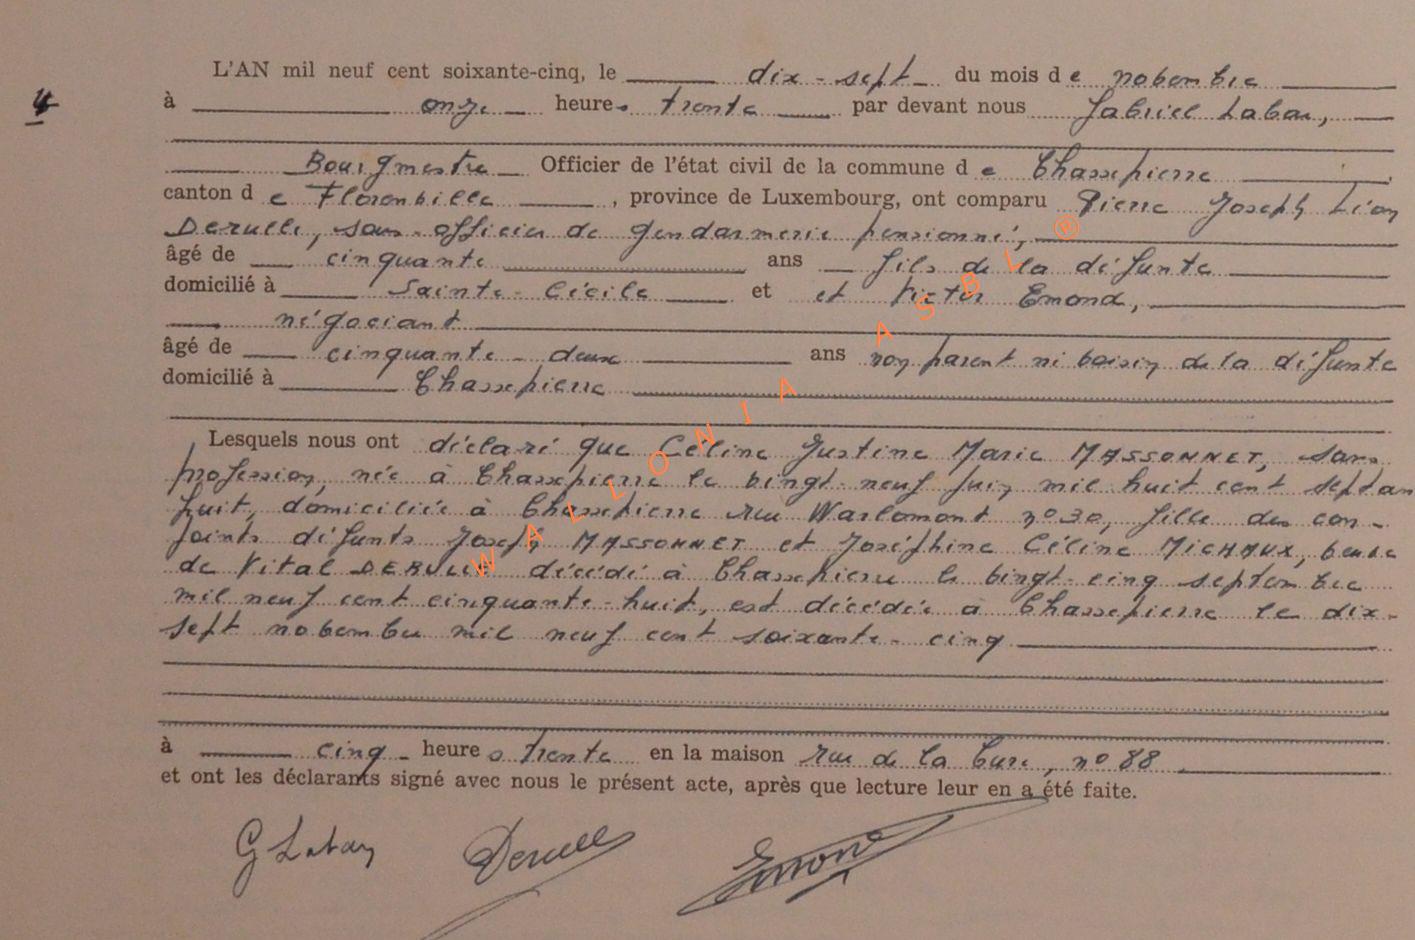 L'AN mil neuf cent soixante-cinq, le dix-sept du mois de novembre
4
à onze heures trente par devant nous Gabriel Labau,
Bourgmestre Officier de l'état civil de la commune de Chassepierre
canton de Florenville, province de Luxembourg, ont comparu Pierre Joseph Léon
DERULLE, sous-officier de gendarmerie pensionné,
âgé de cinquante ans fils de la défunte
domicilié à Sainte-Cécile et et Victor Emond,
négociant
âgé de cinquante-deux ans non parent ni voisin de la défunte
domicilié à Chassepierre
Lesquels nous ont déclaré que Céline Justine Marie MASSONNET, sans
profession, née à Chassepierre le vingt-neuf juin mil huit cent septan
huit, domiciliée à Chassepierre rue Warlomont n° 30, fille des con-
joints défunts Joseph MASSONNET et Joséphine Céline MICHAUX, veuve
de Vital DERULLE décédé à Chassepierre le vingt-cinq septembre
mil neuf cent cinquante-huit, est décédée à Chassepierre le dix-
sept novembre mil neuf cent soixante-cinq
à cinq heures trente en la maison rue de la Cure, n° 88
et ont les déclarants signé avec nous le présent acte, après que lecture leur en a été faite.
G Labau Derulle Emond
WALLONIA ASBL ®